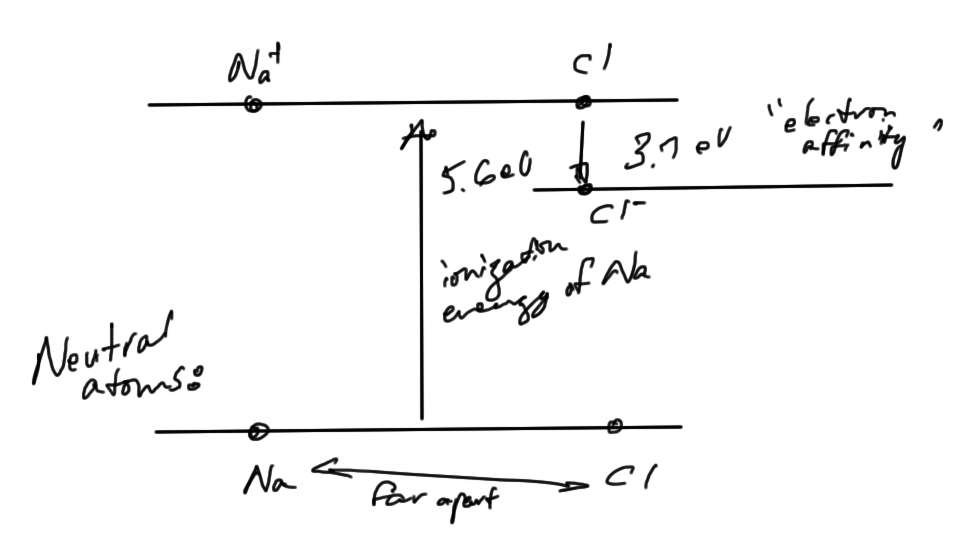 Na+ Cl
5.6 eV 3.7 eV "electron affinity"
Cl-
ionization
energy of Na
Neutral
atoms:
Na Cl
far apart